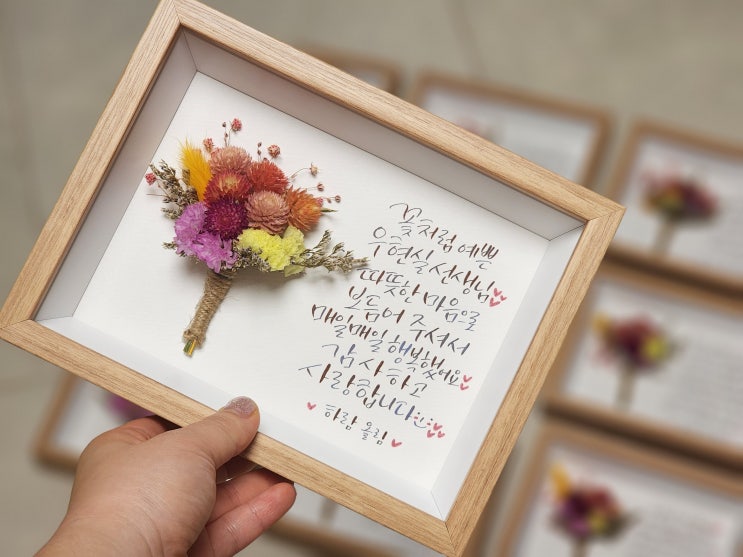 꽃처럼 예쁜
우현실 선생님
따뜻한 마음으로
보듬어 주셔서
매일매일 행복했어요
감사하고
사랑합니다
하람 올림